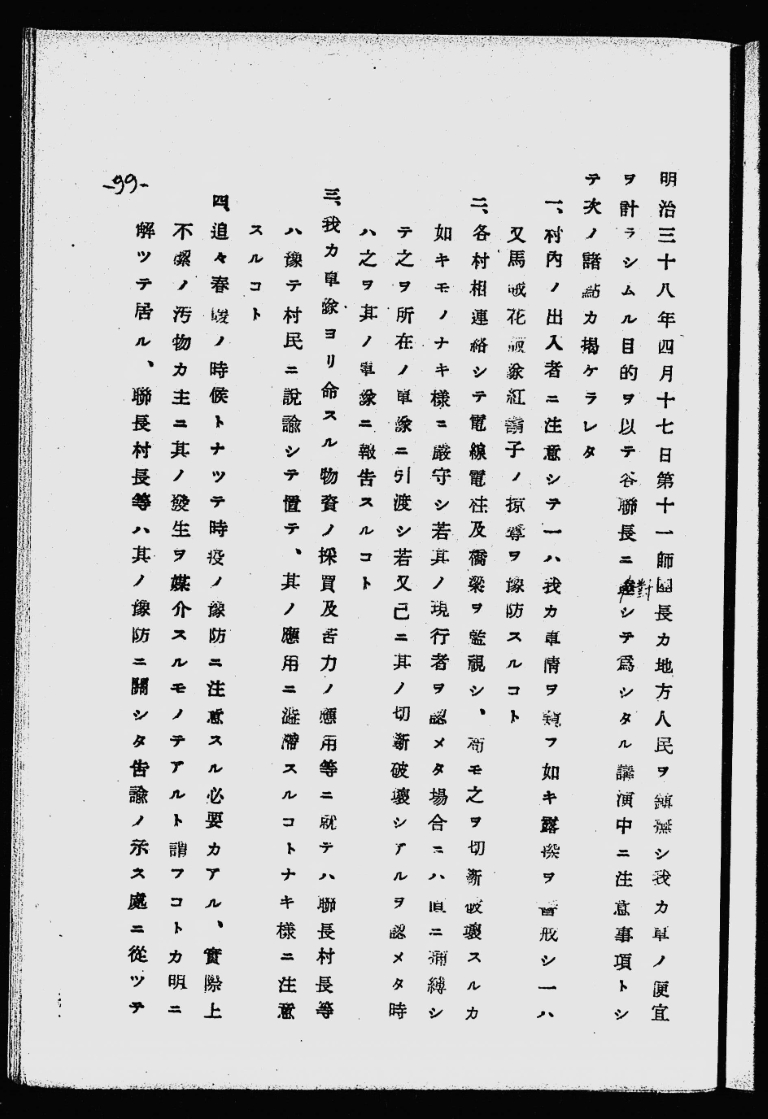 明治三十八年四月十七日第十一師團長カ地方人民ヲ鎮撫シ我カ軍ノ便宜
ヲ計ラシムル目的ヲ以テ各聯長ニ對シテ爲シタル講演中ニ注意事項トシ
テ次ノ諸點カ揭ケラレタ
一、村內ノ出入者ニ注意シテ一ハ我カ軍情ヲ窺フ如キ露探ヲ警戒シ一ハ
又馬賊花 象紅鬍子ノ掠奪ヲ豫防スルコト
二、各村相連絡シテ電線電柱及橋梁ヲ監視シ、苟モ之ヲ切斷破壞スルカ
如キモノナキ樣ニ嚴守シ若其ノ現行者ヲ認メタ場合ニハ直ニ捕縛シ
テ之ヲ所在ノ軍隊ニ引渡シ若又己ニ其ノ切斷破壞シアルヲ認メタ時
ハ之ヲ其ノ軍隊ニ報告スルコト
三、我カ軍隊ヨリ命スル物資ノ採買及苦力ノ應用等ニ就テハ聯長村長等
ハ豫テ村民ニ說諭シテ置テ、其ノ應用ニ澁滯スルコトナキ樣ニ注意
スルコト
四、追々春暖ノ時候トナツテ時疫ノ豫防ニ注意スル必要カアル、實際上
不潔ノ汚物カ主ニ其ノ發生ヲ媒介スルモノテアルト謂フコトカ明ニ
解ツテ居ル、聯長村長等ハ其ノ豫防ニ關シタ告諭ノ示ス處ニ從ツテ
-99-